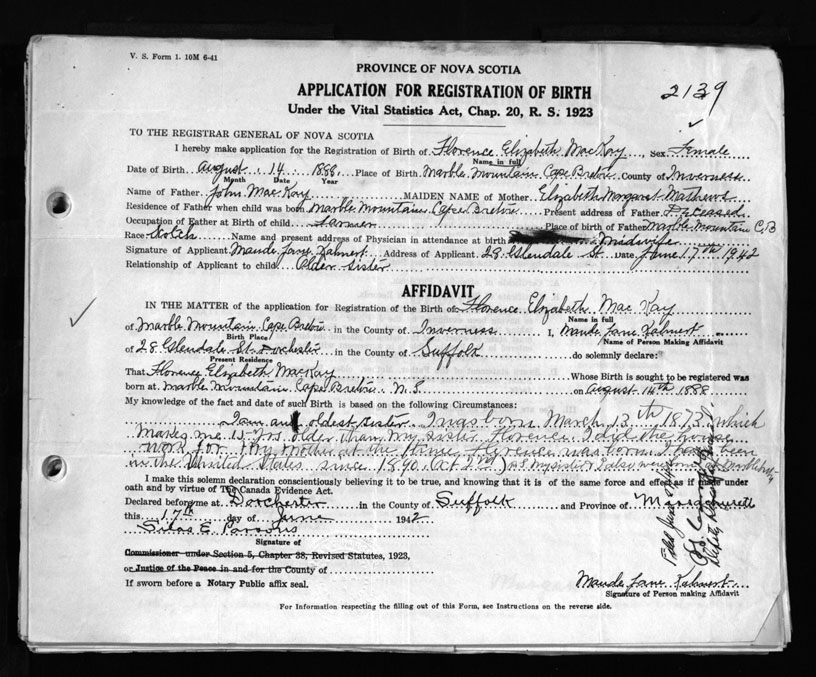 V. S. Form 1. 10M 6-41
PROVINCE OF NOVA SCOTIA
APPLICATION FOR REGISTRATION OF BIRTH
2139
Under the Vital Statistics Act, Chap. 20, R. S. 1923
TO THE REGISTRAR GENERAL OF NOVA SCOTIA
I hereby make application for Registration of Birth of Florence Elizabeth MacKay, Sex Female
Name in full
Date of Birth August 14 1888 Place of Birth Marble Mountain Cape Breton County of Inverness
Month Date Year
Name of Father John MacKay MAIDEN NAME of Mother Elizabeth Margaret Mathews
Residence of Father when child was born Marble Mountain Cape Breton Present address of Father Decessed
Occupation of Father at Birth of child farmer Place of birth of Father Marble Mountain C.B
Race Scotch Name and present address of Physician in attendance at birth Midwife
Signature of Applicant Maude Jane Address of Applicant 28 Glendale St Date June 17th 1942
Relationship of Applicant to child Older sister
AFFIDAVIT
IN THE MATTER of the application for Registration of the Birth of Florence Elizabeth MacKay
Name in full
of Marble Mountain Cape Breton in the County of Inverness I, Maude Jane
Birth Place Name of Person Making Affidavit
of 28 Glendale St Dorchester in the County of Suffolk do solemnly declare:
Present Residence
That Florence Elizabeth MacKay Whose Birth is sought to be registered was
born at Marble Mountain Cape Breton N.S. on August 14th 1888
My knowledge of the fact and date of such Birth is based on the following Circumstances:
I am an oldest sister. I was born March 13th 1873 which
makes me 15 yrs older than my sister Florence. I did the house
work for my mother at the time Florence was born. I have been
in the United States since 1890
I make this solemn declaration conscientiously believing it to be true, and knowing that it is of the same force and effect as if made under
oath and by virtue of The Canada Evidence Act.
Declared before me at Dorchester in the County of Suffolk and Province of
this 17th day of June 1942
Silas E. Parsons
Signature of
Commissioner under Section 5, Chapter 38, Revised Statutes, 1923,
or Justice of the Peace in and for the County of
If sworn before a Notary Public affix seal.
Maude Jane
Signature of Person making Affidavit
For Information respecting the filling out of this Form, see Instructions on the reverse side.